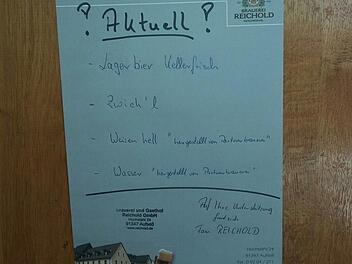 BRAUEREI
REICHOLD
? Aktuell ?
- Lagerbier Kellerfrisch
- Zwick'l
- Weizen hell "hergestellt von Partnerbrauerei"
- Wasser "hergestellt von Partnerbrauerei"
Auf Ihre Unterstützung
freut sich
Fam. REICHOLD
Brauerei und Gasthof
Reichold GmbH
Hochstahl 24
91347 Aufseß
www.reichold.de
Hochstahl 24
91347 Aufseß